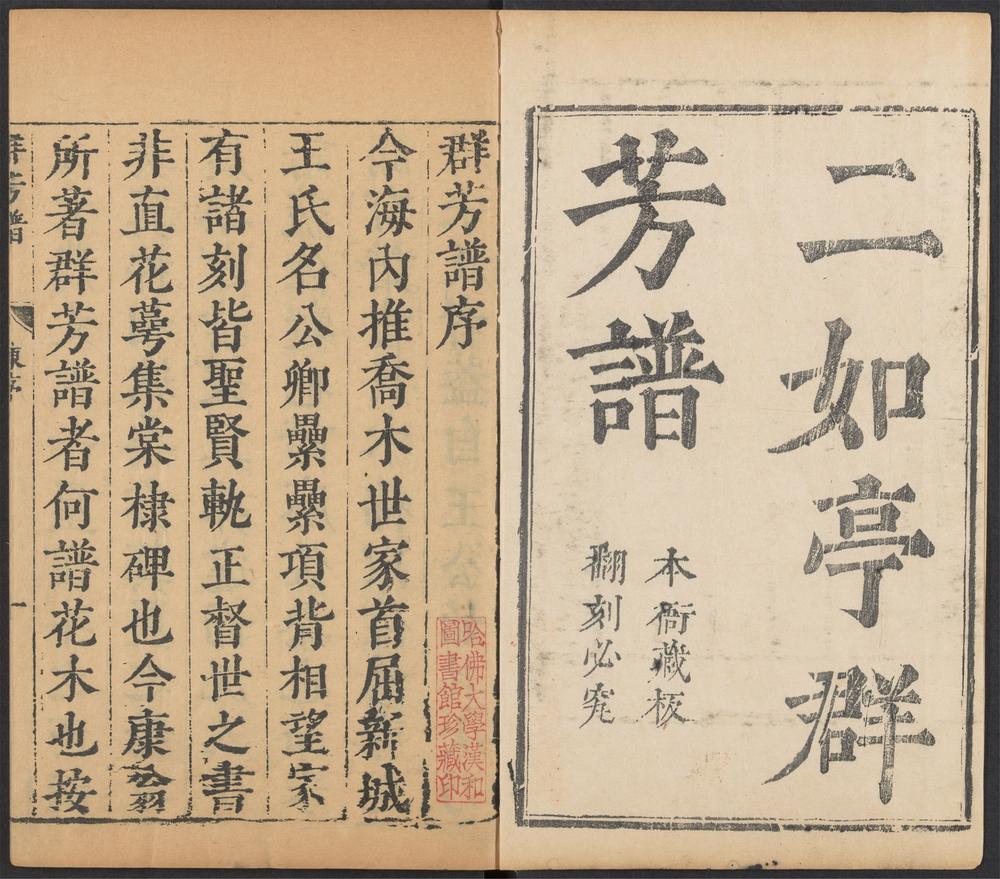 二如亭群
芳譜
本衙藏板
翻刻必究
群芳譜序
哈佛大學漢和
圖書館珍藏印
今海內推喬木世家首屈新城
王氏名公卿纍纍項背相望家
有諸刻皆聖賢軌正督世之書
非直花萼集棠棣碑也今康翁
所著群芳譜者何譜花木也按
群芳譜
序
一